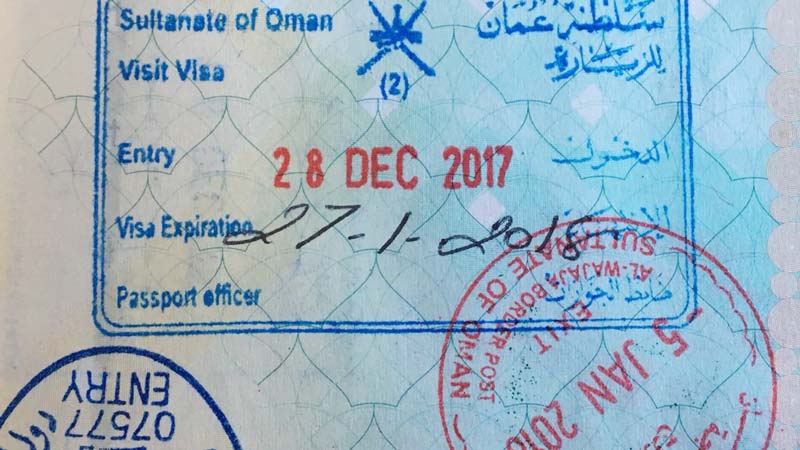 Sultanate of Oman سلطنة عمان
Visit Visa للزيارة
(2)
Entry 28 DEC 2017 الدخول
Visa Expiration 27-1-2018
Passport officer ضابط الجوازات
SULTANATE OF OMAN
AL-WAJAJA BORDER POST
EXIT
5 JAN 201
07577
ENTRY